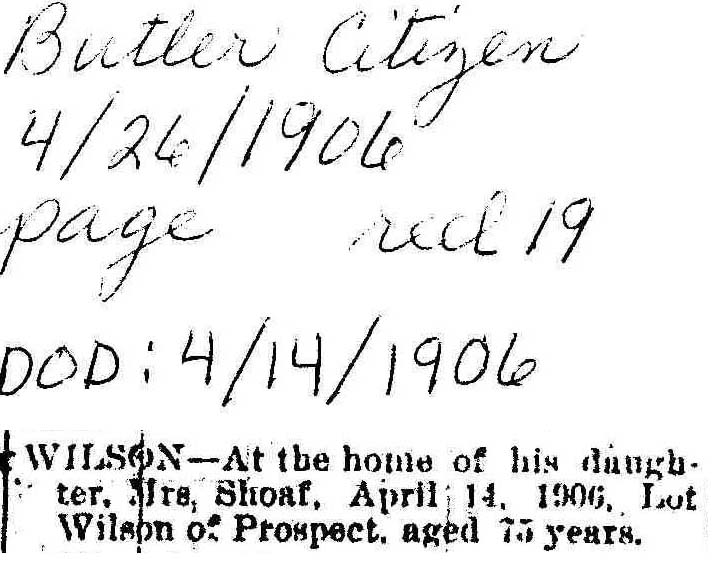 Butler Citizen
4/26/1906
page reel 19
DOD: 4/14/1906
WILSON—At the home of his daugh-
ter, Mrs. Shoaf, April 14, 1906, Lot
Wilson of Prospect, aged 75 years.